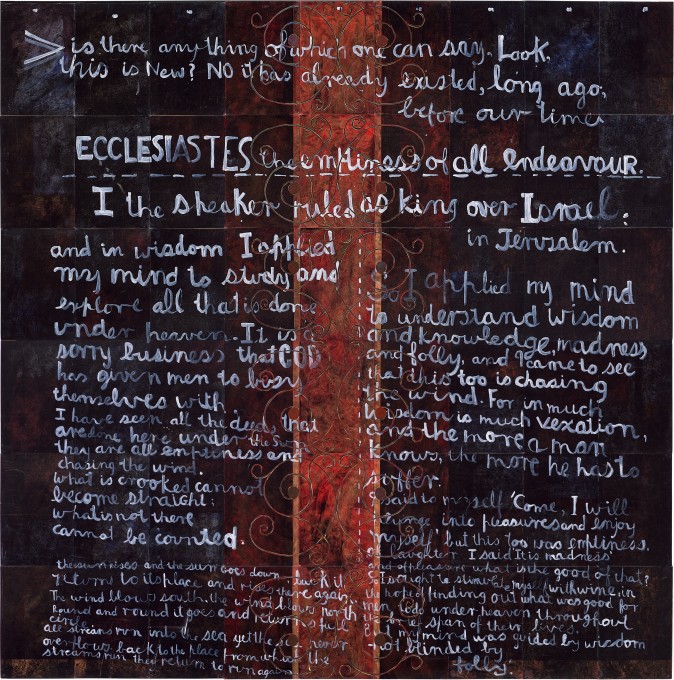 is there anything of which one can say. Look,
this is New? NO it has already existed, long ago,
before our time
ECCLESIASTES the emptiness of all endeavour.
I the speaker ruled as king over Israel:
in Jerusalem.
and in wisdom I applied
my mind to study and
explore all that is done
under heaven. It is a
sorry business that GOD
has given men to busy
themselves with.
I have seen all the deeds that
are done here under the sun
they are all emptiness and
chasing the wind.
what is crooked cannot
become straight;
what is not there
cannot be counted.
the sun rises and the sun goes down back it
returns to its place and rises there again
The wind blows south, the wind blows north
Round and round it goes and returns full
circle
all streams run into the sea yet the sea never
overflows back to the place from which the
streams run they return to run again
So I applied my mind
to understand wisdom
and knowledge, madness
and folly, and I came to see
that this too is chasing
the wind. For in much
wisdom is much vexation,
and the more a man
knows, the more he has to
suffer.
I said to myself 'Come, I will
plunge into pleasures and enjoy
myself' but this too was emptiness.
of laughter I said It is madness'
and of pleasure what is the good of that?
So I sought to stimulate myself with wine, in
the hope of finding out what was good for
men to do under heaven throughout
the brief span of their lives.
But my mind was guided by wisdom
not blinded by
folly.